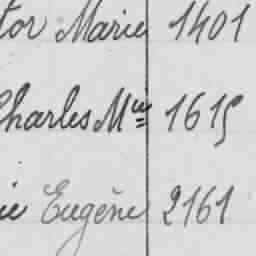 tor Marie 1401
Charles Mie 1615
ie Eugène 2161